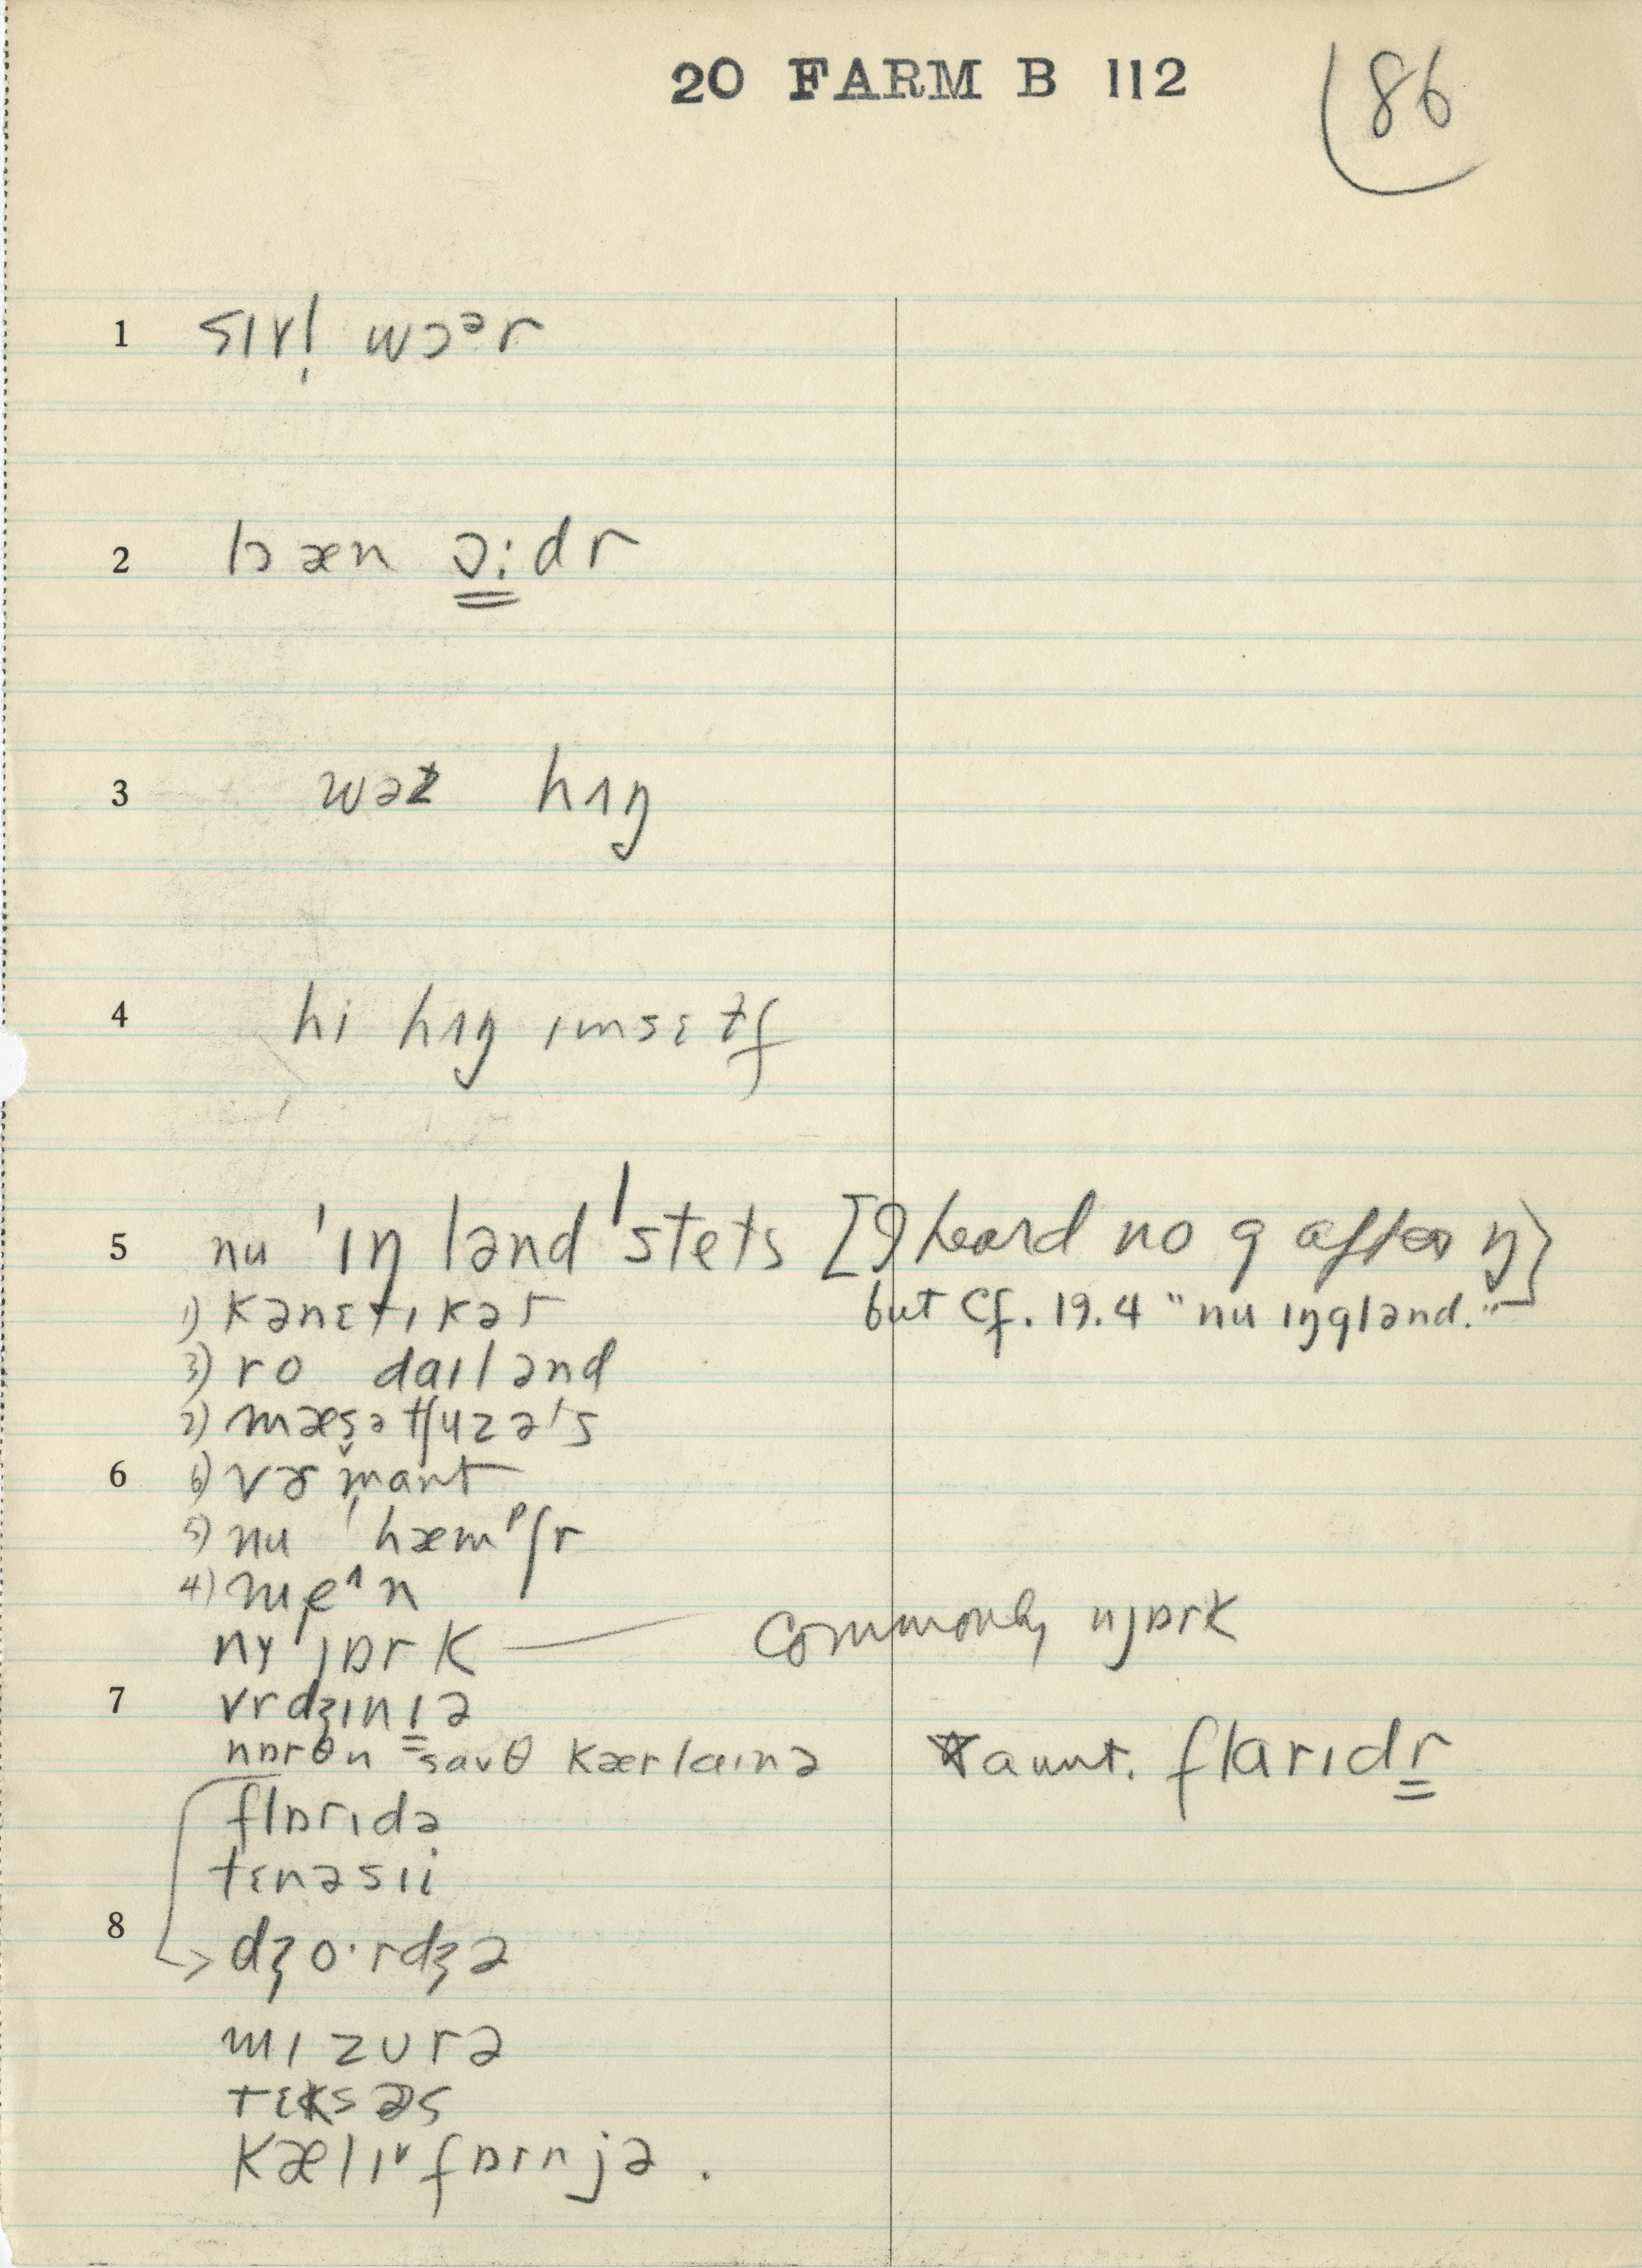 20 FARM B 112
86
1 sɪvl̩ wɔᵊr
2 bæn ɔːdr
3 wəz hʌŋ
4 hi hʌŋ ɪmsɛɫf
5 nu ˈɪŋlənd ˈstets [I heard no g after ŋ]
1) kənɛtɪkət but cf. 19.4 "nu ɪŋglənd."
3) ro daɪlənd
2) mæsətʃuzəts
6 6) vɚmant
5) nu ˈhæmᵖʃr
4) meᶦn
ny jɒrk — commonly njɒrk
7 vrdʒɪnɪə
nɒrθn savθ kærlaɪnə *aunt. flarɪdr
flɒrɪdə
tɛnəsɪi
8 dʒo·rdʒə
mɪzʊrə
tɛksəs
kælɪfɒrnjə.